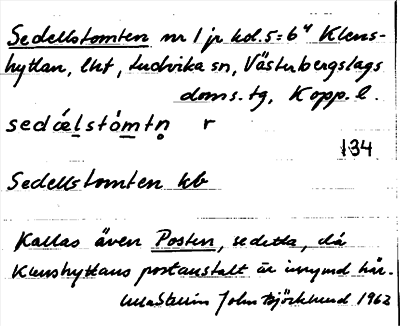 Sedellstomten nr 1 jr kol. 5=6⁴ Klens-
hyttan, lht, Ludvika sn, Västerbergslags
doms. tg, Kopp. l.
sedǽlstòmtn̥ r
134
Sedellstomten kb
Kallas även Posten, se detta, då
Klenshyttans postanstalt är inrymd här.
John Björklund 1962